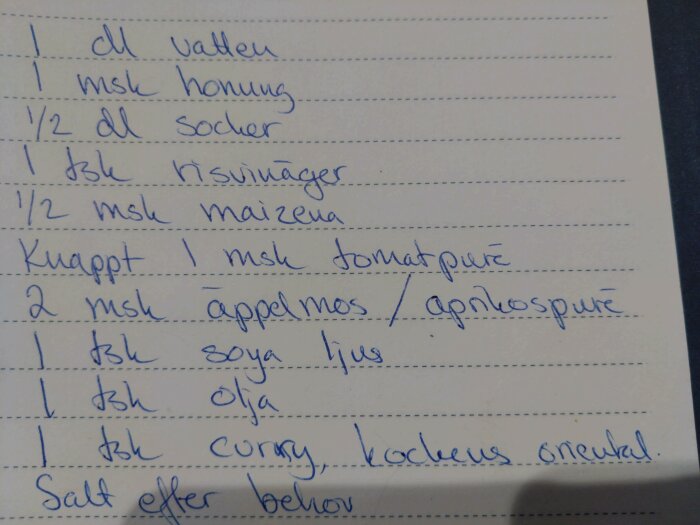 1 dl vatten
1 msk honung
1/2 dl socker
1 tsk risvinäger
1/2 msk maizena
Knappt 1 msk tomatpuré
2 msk äppelmos / aprikospuré
1 tsk soya ljus
1 tsk olja
1 tsk curry, kockens oriental.
Salt efter behov